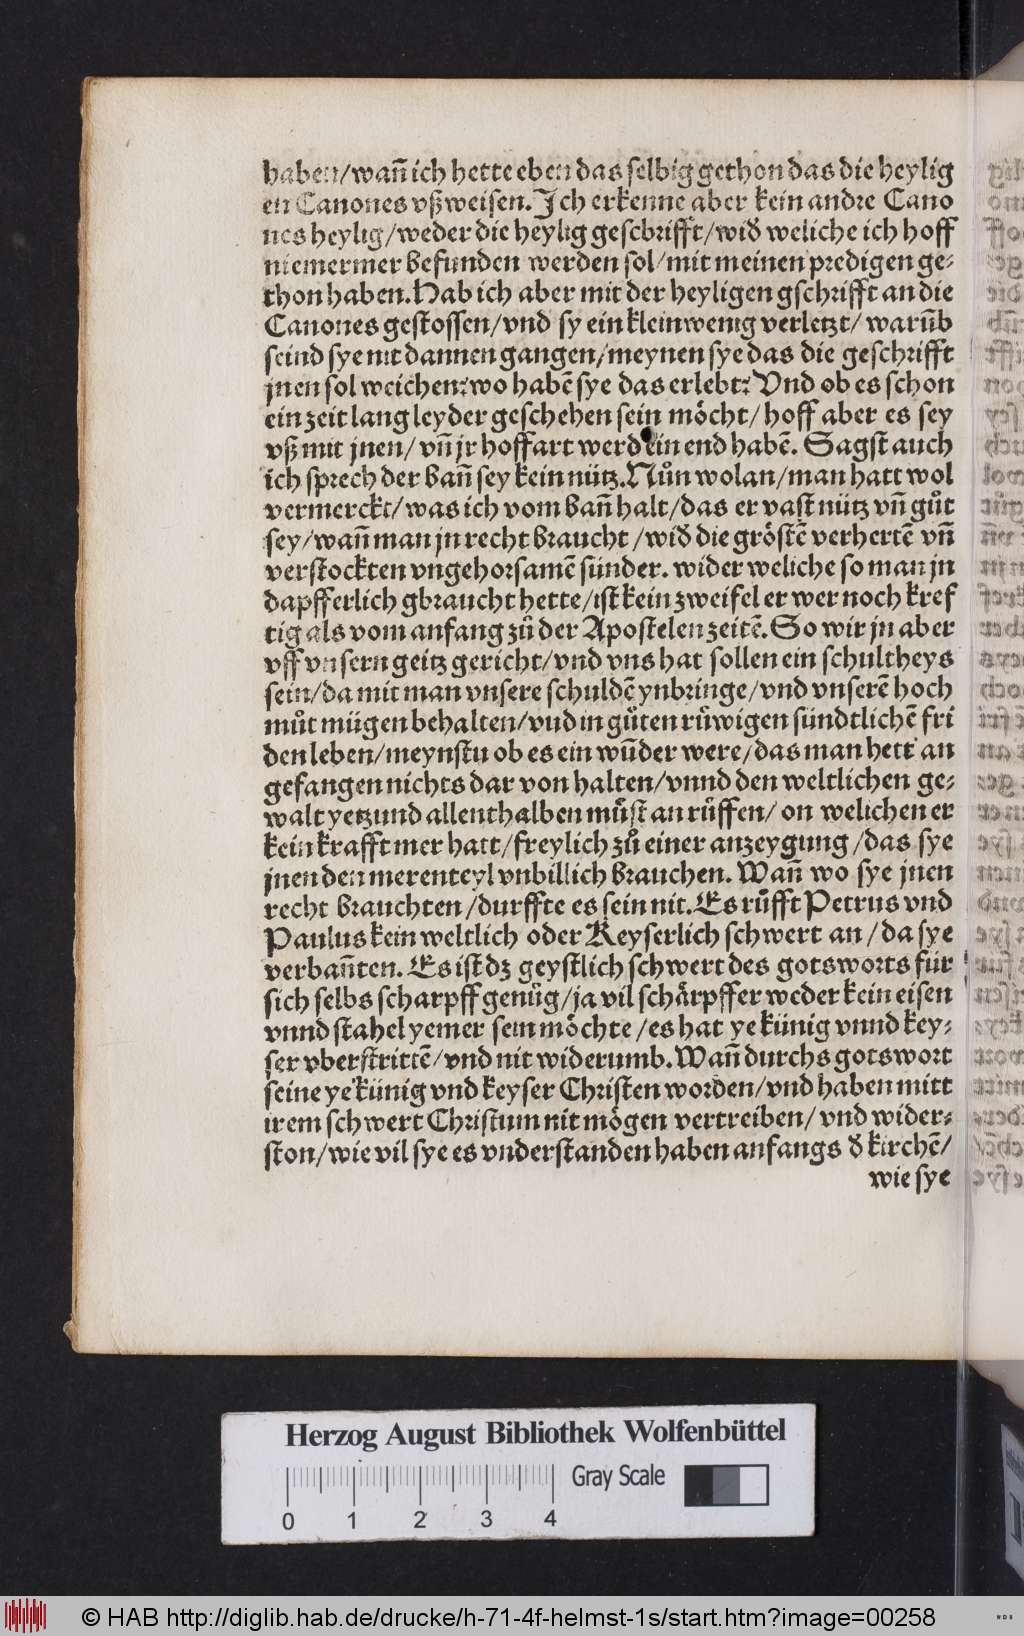 haben/wañ ich hette eben das selbig gethon das die heylig
en Canones vßweisen. Ich erkenne aber kein andre Cano
nes heylig/weder die heylig geschrifft/wið weliche ich hoff
niemermer befunden werden sol/mit meinen predigen ge⸗
thon haben. Hab ich aber mit der heyligen gschrifft an die
Canones gestossen/vnd sy ein klein wenig verletzt/ warūb
seind sye nit dannen gangen/meynen sye das die geschrifft
jnen sol weichen? wo habē sye das erlebt? Vnd ob es schon
ein zeit lang leyder geschehen sein möcht/ hoff aber es sey
vß mit jnen/ vñ jr hoffart werd ein end habē. Sagst auch
ich sprech der bañ sey kein nütz. Nůn wolan/man hatt wol
vermerckt/ was ich vom bañ halt/das er vast nütz vñ gůt
sey/wañ man jn recht braucht/wið die gröstē verhertē vñ
verstockten vngehorsamē sünder. wider weliche so man jn
dapfferlich gbraucht hette/ist kein zweifel er wer noch kref
tig als vom anfang zů der Apostelen zeitē. So wir jn aber
vff vnsern geitz gericht/vnd vns hat sollen ein schultheys
sein/da mit man vnsere schuldē ynbringe/vnd vnserē hoch
můt mügen behalten/vnd in gůten růwigen sündtlichē fri
den leben/meynstu ob es ein wūder were/das man hett an
gefangen nichts dar von halten/vnnd den weltlichen ge⸗
walt yetzund allenthalben můst an růffen/ on welichen er
kein krafft mer hatt/freylich zů einer anzeygung/das sye
jnen den merenteyl vnbillich brauchen. Wañ wo sye jnen
recht brauchten/durffte es sein nit. Es růfft Petrus vnd
Paulus kein weltlich oder Keyserlich schwert an/da sye
verbañten. Es ist dz geystlich schwert des gotsworts für
sich selbs scharpff genůg/ja vil schärpffer weder kein eisen
vnnd stahel yemer sein möchte/es hat ye künig vnnd key⸗
ser vberstrittē/vnd nit widerumb. Wañ durchs gotswort
seine ye künig vnd keyser Christen worden/vnd haben mitt
irem schwert Christum nit mögen vertreiben/ vnd wider⸗
ston/wie vil sye es vnderstanden haben anfangs ð kirchē/
wie sye
Herzog August Bibliothek Wolfenbüttel
Gray Scale
0 1 2 3 4
© HAB http://diglib.hab.de/drucke/h-71-4f-helmst-1s/start.htm?image=00258